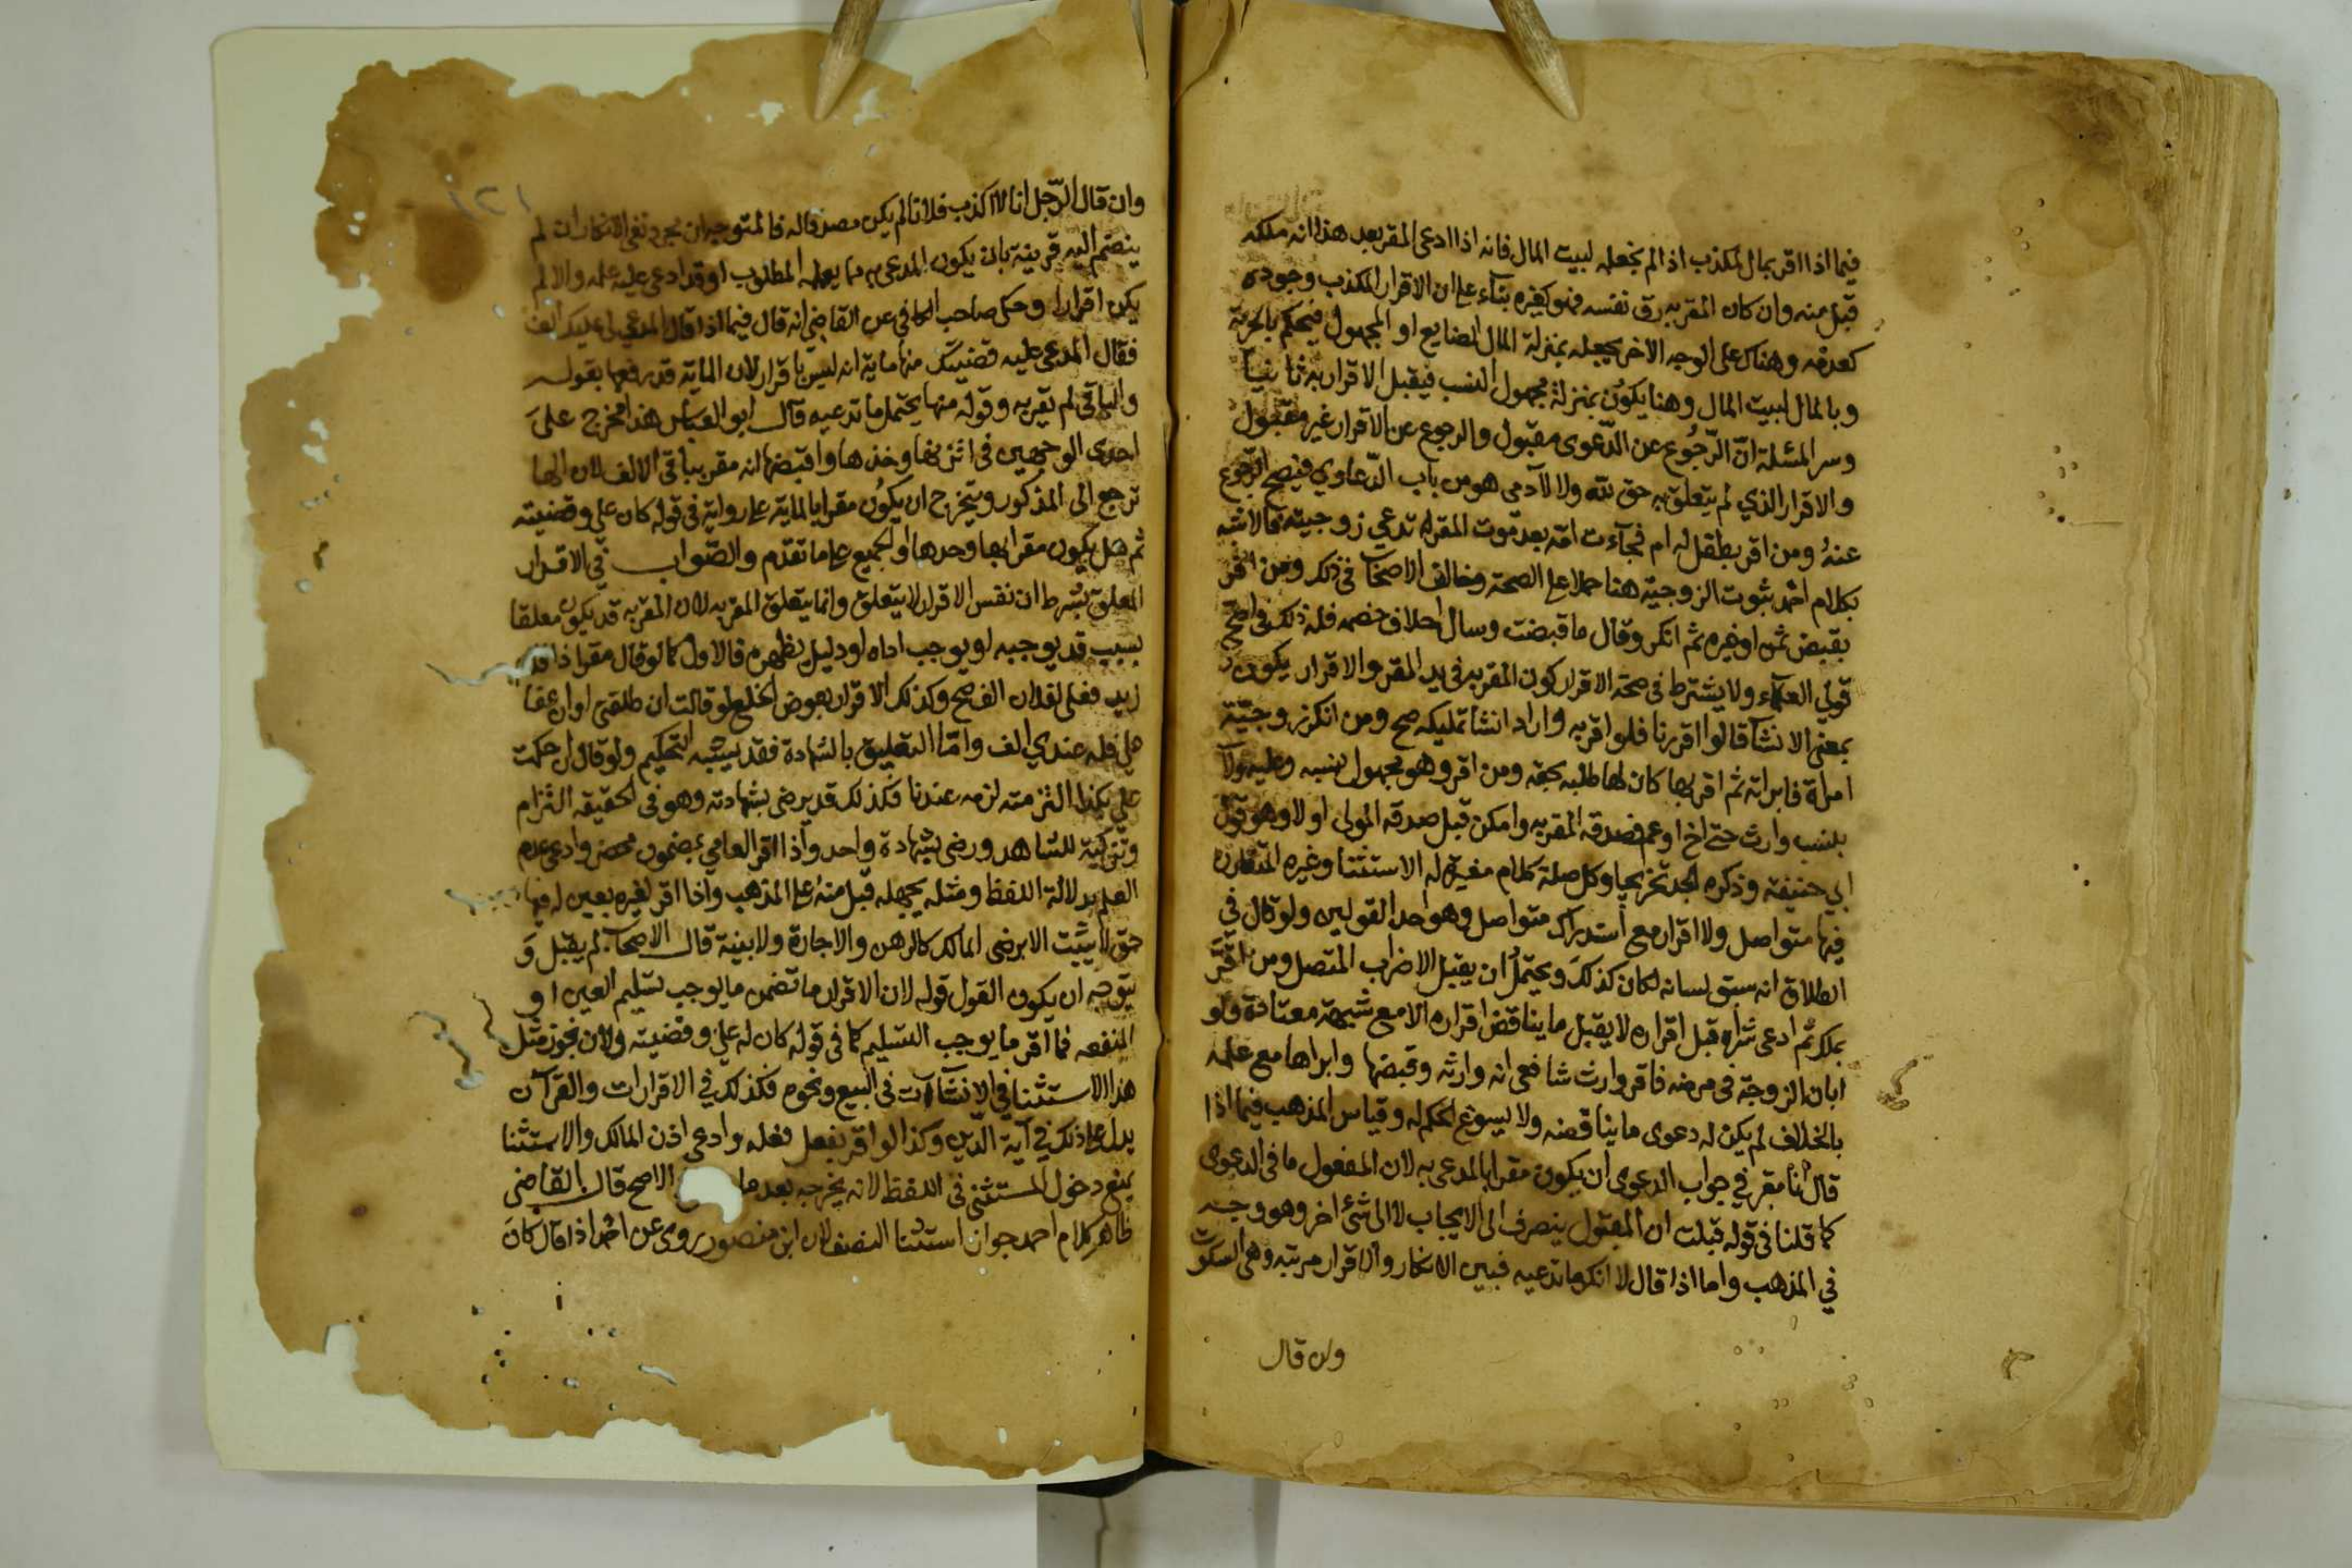 فيما اذا اقر بمال لمكذب اذا لم نجعله لبيت المال فانه اذا ادعى المقر بعد هذا انه ملكه
قبل منه وان كان المقر به رق نفسه فهو كغيره بناء على ان الاقرار المكذب وجوده
كعدمه وهناك على الوجه الاخر يجعله بمنزلة المال الضايع او المجهول فيحكم بالحرية
وبالمال لبيت المال وهنا يكون بمنزلة مجهول النسب فيقبل الاقرار به ثانيا
وسر المسئلة انّ الرّجُوع عن الدّعوى مقبول والرجوع عن الاقرار غير مقبول
والاقرار الذي لم يتعلق به حق لله ولا لآدمى هو من باب الدّعاوي فيصح الرّجوع
عنهُ ومن اقر بطفل له ام فجآءت امّه بعد موت المقر له تدعي زوجيته فالاشبه
بكلام احمد ثبوت الزوجيّة هنا حملا على الصحة وخالف الاصحاب في ذلك ومن اقر
بقبض ثمن او غيره ثم انكر وقال ما قبضت وسال احلاف خصمه فله ذلك في اصح
قولي العلماء ولا يشترط فى صحّة الاقرار كون المقر به فى يد المقر والاقرار يكون
بمعنى الانشا قالوا اقررنا فلو اقر به واراد انشا تمليكه صح ومن انكر زوجيّة
امراة فابراته ثم اقر بها كان لها طلبه بحقه ومن اقر وهو مجهول نسبه وعليه ولآ
بنسب وارث حتى اخ او عم فصدقه المقر به وامكن قبل صدقه المولى او لا وهو قول
ابي حنيفة وذكره الجد تخريجا وكل صلة كلام مغيرة له الاستثنا وغيره المتقارن
فيها متواصل ولا اقرار مع استدراك متواصل وهو احد القولين ولو قال في
الطلاق انه سبق لسانه لكان كذلك ويحتملُ ان يقبل الاضراب المتصل ومن اقرّ
بملك ثم ادعى شراه قبل اقراره لا يقبل ما يناقض اقراره الا مع شبهة معتادة ولو
ابان الزوجة فى مرضه فاقر وارث شافعى انه وارثه وقبضها وابراها مع علمه
بالخلاف لم يكن له دعوى ما يناقضه ولا يسوغ الحكم له وقياس المذهب فيما اذا
قال انا مقر في جواب الدعوى ان يكون مقرا بالمدعى به لان المفعول ما فى الدعوى
كما قلنا فى قوله قبلت ان المقبول ينصرف الى الايجاب لا الى شئ اخر وهو وجه
في المذهب واما اذا قال لا انكر ما تدعيه فبين الانكار والاقرار مرتبه وهى السكوت
وان قال
١٢١
وان قال الرّجل انا لا اكذب فلانا لم يكن مصدقا له فالمتوجه ان مجرد نفى الانكار ان لم
ينضم اليه قرينة بان يكون المدعى به مما يعلمه المطلوب او قد ادعى عليه علمه والا لم
يكن اقرارا وحكى صاحب الكافي عن القاضي انه قال فيما اذا قال المدعي لى عليك الف
فقال المدعى عليه قضيتك منها ماية انه ليس باقرار لان الماية قد رفعها بقوله
والباقى لم يقر به وقوله منها يحتمل ما تدعيه قال ابو العباس هذا مخرج على
احدى الوجهين فى اتزنها وخذها واقبضها انه مقر بباقى الالف لان الها
ترجع الى المذكور ويتخرج ان يكون مقرا بالماية على رواية فى قوله كان علي وقضيته
ثم هل يكون مقرا بها وحدها او الجميع على ما تقدم والصّواب في الاقرار
المعلق بشرط ان نفس الاقرار لا يتعلق وانما يتعلق المقر به لان المقر به قد يكون معلقا
بسبب قد يوجبه او يوجب اداه او دليل يظهره فالاول كما لو قال مقرا اذا قدم
زيد فعلى لفلان الف صح وكذلك الاقرار بعوض الخلع لو قالت ان طلقني او ان عفا
عني فله عندي الف وامّا التعليق بالشهادة فقد يشبه التحكيم ولو قال ان حكمت
علي بكذا التزمته لزمه عندنا فكذلك قد يرضى بشهادته وهو فى الحقيقه التزام
وتزكية للشاهد ورضى بشهادة واحد واذا اقر العامي بمضمون محضر وادعى عدم
العلم بدلالة اللفظ ومثله يجهله قبل منهُ على المذهب واذا اقر لغيره بعين له فيها
حق لا يثبت الا برضى المالك كالرهن والاجارة ولا بينة قال الاصحاب لم يقبل وَ
يتوجه ان يكون القول قوله لان الاقرار ما تضمن ما يوجب تسليم العين او
المنفعه فما اقر ما يوجب التسليم كما فى قوله كان له علي وقضيته ولان نجوز مثل
هذا الاستثنا في الانشآءات فى البيع ونحوه فكذلك في الاقرارات والقرآن
يدل على ذلك في آية الدّين وكذا لو اقر بفعل فعله وادعى اذن المالك والاستثنا
يمنع دخول المستثنى فى اللفظ لا انه يخرجه بعد ما الاصح قال القاضى
ظاهر كلام احمد جواز استثنا النصف لان ابن منصور روى عن احمد اذا قال كان